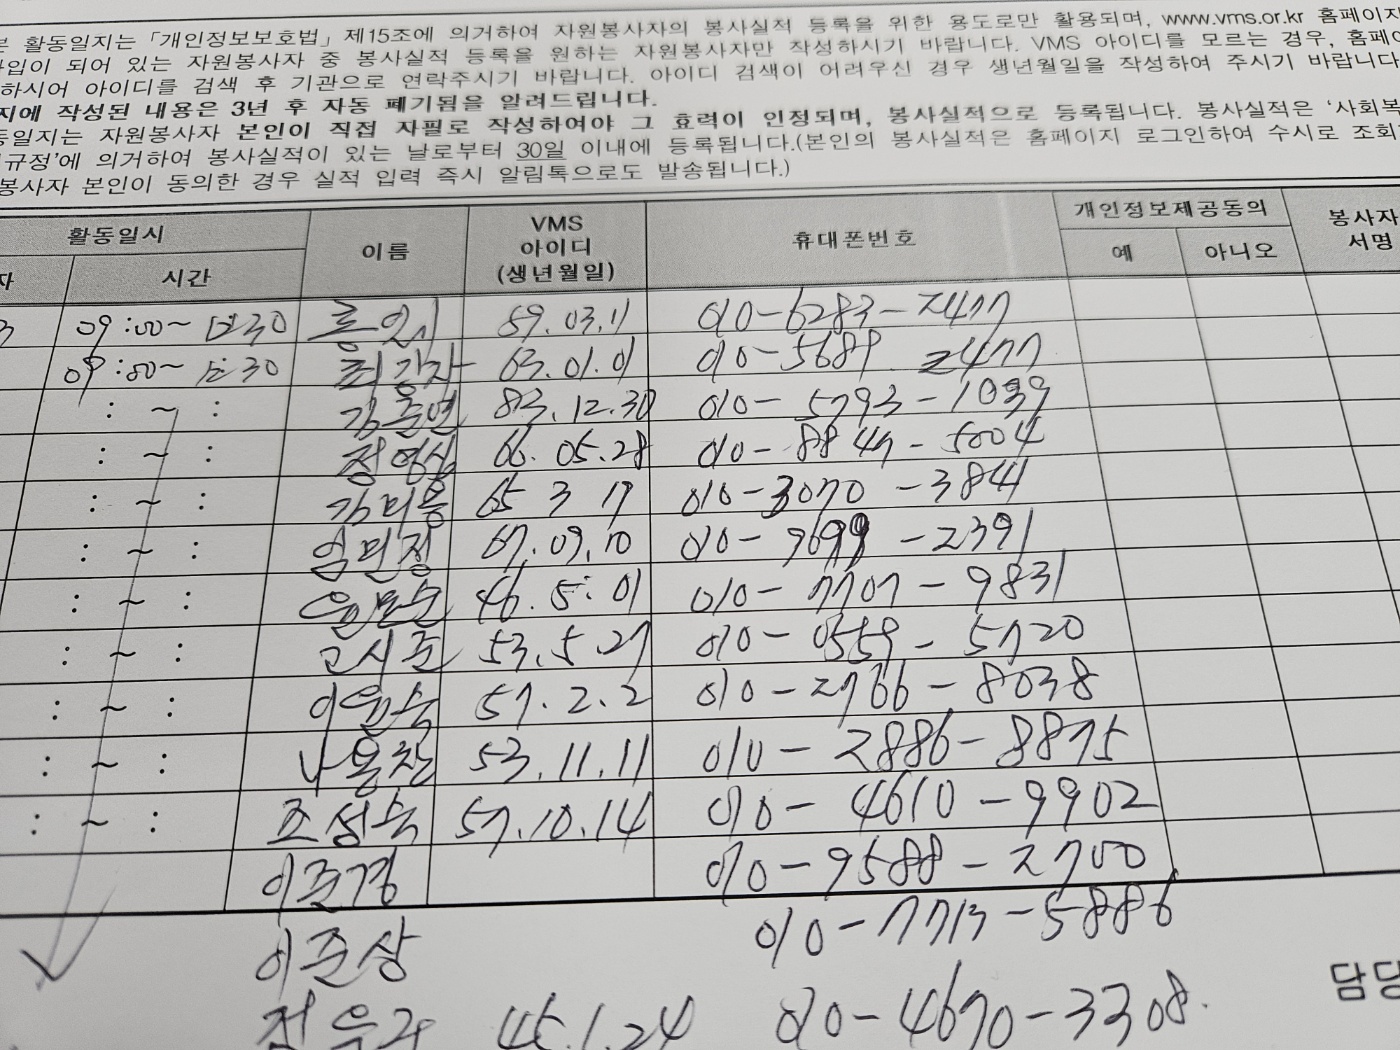 본 활동일지는 「개인정보보호법」 제15조에 의거하여 자원봉사자의 봉사실적 등록을 위한 용도로만 활용되며, www.vms.or.kr 홈페이지
가입이 되어 있는 자원봉사자 중 봉사실적 등록을 원하는 자원봉사자만 작성하시기 바랍니다. VMS 아이디를 모르는 경우, 홈페이
하시어 아이디를 검색 후 기관으로 연락주시기 바랍니다. 아이디 검색이 어려우신 경우 생년월일을 작성하여 주시기 바랍니다
지에 작성된 내용은 3년 후 자동 폐기됨을 알려드립니다.
동일지는 자원봉사자 본인이 직접 자필로 작성하여야 그 효력이 인정되며, 봉사실적으로 등록됩니다. 봉사실적은 '사회복
규정'에 의거하여 봉사실적이 있는 날로부터 30일 이내에 등록됩니다.(본인의 봉사실적은 홈페이지 로그인하여 수시로 조회
봉사자 본인이 동의한 경우 실적 입력 즉시 알림톡으로도 발송됩니다.)
활동일시 이름 VMS 아이디 (생년월일) 휴대폰번호 개인정보제공동의 봉사자 서명
자 시간 예 아니오
3 09:00~ 12:30 59.03.11 010-6283-2477
09:00~ 12:30 최강자 63.01.01 010-5689 2477
: ~ : 김훈연 83.12.30 010-5793-1039
: ~ : 정영심 66.05.28 010-8847-5004
: ~ : 김미용 65 3 17 010-3070-3841
: ~ : 엄민정 67.09.10 010-9699-2391
: ~ : 46.5.01 010-7707-9831
: ~ : 고시준 53.5.27 010-0559-5720
: ~ : 이윤숙 57.2.2 010-2766-8038
: ~ : 나용찬 53.11.11 010-2886-8875
: ~ : 조성숙 57.10.14 010-4610-9902
이준경 010-9588-2700
이준상 010-7713-5886
45.1.24 010-4670-3308.
담당